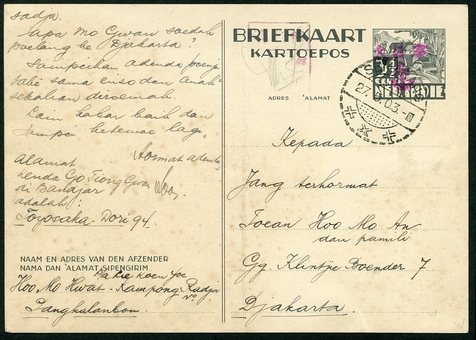 sadja.
Papa Mo Gwan soedah
poelang ke Djakarta?
Sampeikan adenda poenja
tabe sama enso dan anak
sekalian diroemah.
Lain kabar baik dan
sampe ketemoe lagi.
Hormat adenda,
Alamat
tenda Go Tiong Gwan
di Banajar
adalah:
Toyosaka-Dori 94.
NAAM EN ADRES VAN DEN AFZENDER
NAMA DAN ALAMAT SIPENGIRIM
Hoo Mo Kwat - Kampong Radja
Pangkalanbon
BRIEFKAART
KARTOEPOS
ADRES ALAMAT
3½
CENT
27. 8.03-
Kepada
Jang terhormat
Toean Hoo Mo An
dan pamili
Gg. Klintje Boender 7
Djakarta.